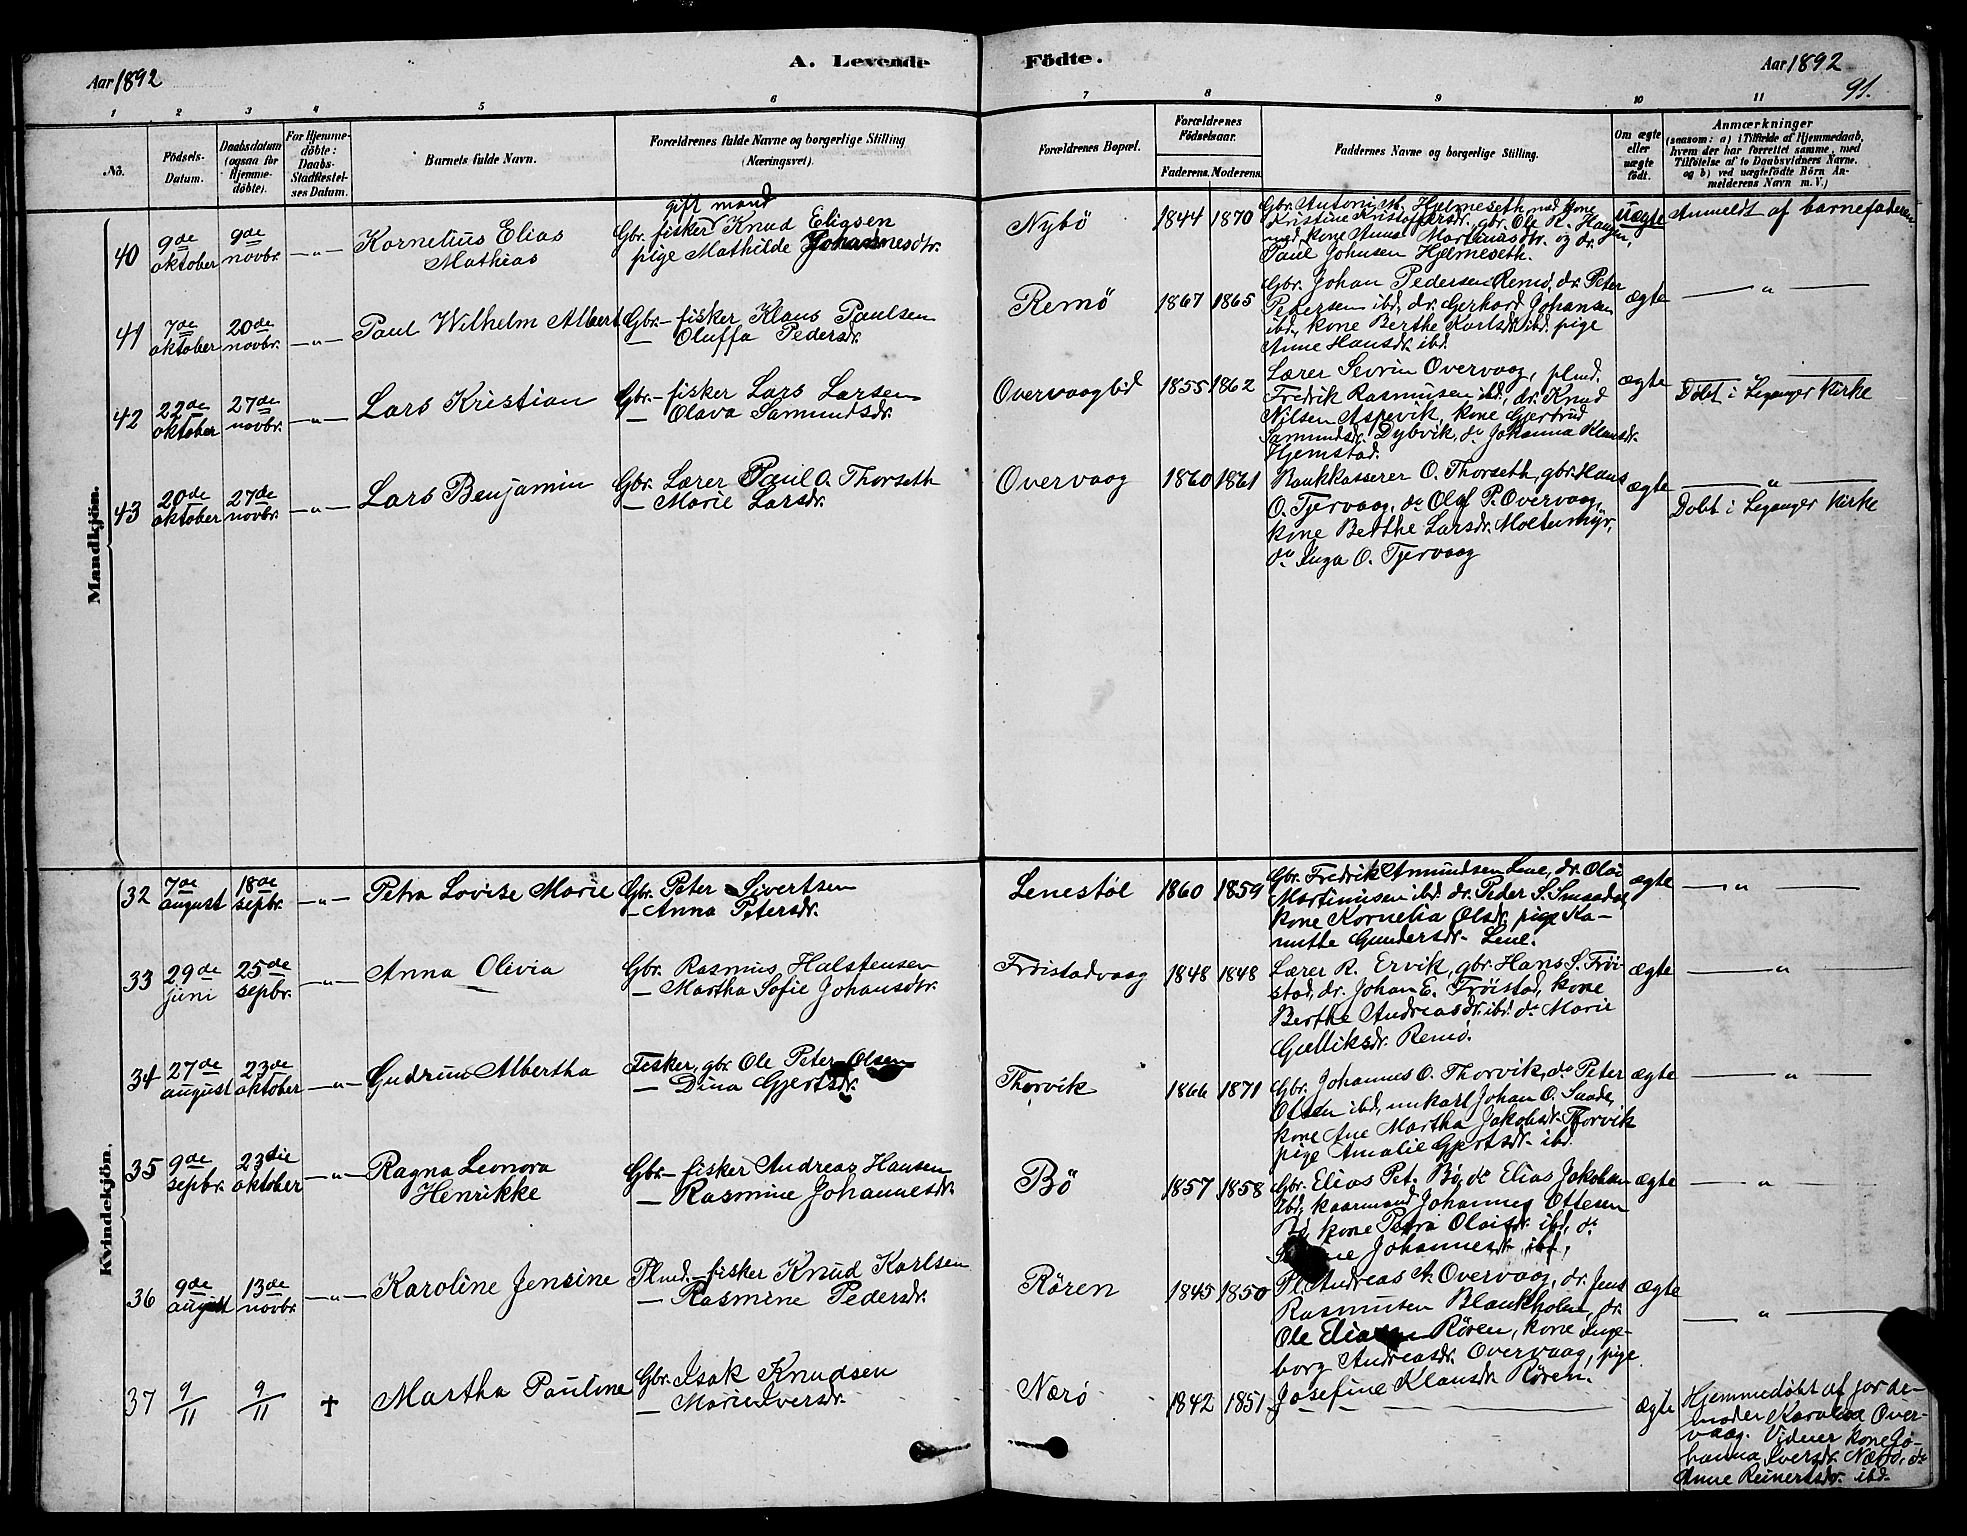 Aar 1892
A. Levende
Födte.
Aar 1892
91.
1 2 3 4 5 6 7 8 9 10 11
No.
Födsels-
Datum.
Daabsdatum
(ogsaa for
Hjemme-
döbte).
For Hjemme-
döbte:
Daabs-
Stadfæstel-
ses Datum.
Barnets fulde Navn.
Forældrenes fulde Navne og borgerlige Stilling
(Næringsvei).
Forældrenes Bopæl.
Forældrenes
Födselsaar.
Faderens. Moderens.
Faddernes Navne og borgerlige Stilling.
Om ægte
eller
uægte
födt.
Anmærkninger
(saasom: a) i Tilfælde af Hjemmedaab,
hvem der har forrettet samme, med
Tilföielse af to Daabsvidners Navne,
og b) ved uægtefödte Börn An-
melderens Navn m. V.)
Mandkjön.
40
9de
oktober
9de
novbr.
—„—
Kornelius Elias
Mathias
gift mand
Gbr. fisker Knud Eliasen
pige Mathilde Johannesdtr.
Nybö
1844 1870
Gbr. Antoni M. Hjelmeseth med kone
Kristine Kristoffersdr., gbr. Ole K. Haugen,
med kone Anne Martinusdtr. og dr.
Paul Johnsen Hjelmeseth.
uægte
Anmeldt af barnefaderen
41
7de
oktober
20de
novbr.
—„—
Paul Wilhelm Albert
Gbr.- fisker Klaus Paulsen
— Oluffa Pedersdr.
Remö
1867 1865
Gbr. Johan Pedersen Remö, dr. Peter
Petersen ibd, dr. Gerhard Johansen
ibd, kone Berthe Karlsdr. ibd. pige
Anne Hansdr. ibd.
ægte
— „ —
42
22de
oktober
27de
novbr.
—„—
Lars Kristian
Gbr.- fisker Lars Larsen
— Olava Samundsdr.
Overvaagbid
1855 1862
Lærer Sevrin Overvaag, plmd.
Fredrik Rasmusen ibd, dr. Knud
Nilsen Aspevik, kone Gjertrud
Samundsdr. Dybvik, do Johanna Klausdr.
Hjemstad.
ægte
— „ —
Döbt i Leganger Kirke
43
20de
oktober
27de
novbr.
—„—
Lars Benjamin
Gbr. Lærer Paul O. Thorseth
— Marie Larsdr.
Overvaag
1860 1861
Bankkasserer O. Thorseth, gbr. Hans
O. Tjervaag, do Olaf P. Overvaag,
kone Berthe Larsdr. Moltumyr,
do Inga O. Tjervaag
ægte
— „ —
Döbt i Leganger Kirke
Kvindekjön.
32
7de
august
18de
sepbr.
—„—
Petra Lovise Marie
Gbr. Peter Sivertsen
— Anna Petersdr.
Lenestöl
1860 1859
Gbr. Fredrik Amundsen Lene, dr. Olai
Martinusen ibd. dr. Peder S.
kone Kornelia Olsdr. pige Ka-
nutte Gundersdr. Leine.
ægte
— „ —
33
29de
juni
25de
sepbr.
—„—
Anna Olivia
Gbr. Rasmus Halstensen
— Martha Sofie Johansdtr.
Fröistadvaag
1848 1848
Lærer R. Ervik, gbr. Hans S. Fröi-
stad, dr. Johan E. Fröistad, kone
Berthe Andreasdr. ibd. do Marie
Gulliksdr. Remö.
ægte
— „ —
34
27de
august
23de
oktober
—„—
Gudrun Albertha
Fisker, gbr. Ole Peter Olsen
— Dina Gjertsdr.
Thorvik
1866 1871
Gbr. Johannes O. Thorvik, do Peter
Ottsen ibd, unkarl Johan O. Saade,
kone Ane Martha Jakobsdr. Thorvik
pige Amalie Gjertsdr. ibd.
ægte
— „ —
35
9de
sepbr.
23die
oktober
—„—
Ragna Leonora
Henrikke
Gbr.- fisker Andreas Hansen
— Rasmine Johannesdr.
Bö
1857 1858
Gbr. Elias Pet. Bö, do Elias Jakobsen
ibd, kaarmand Johannes Ottesen
Bö, kone Petra Olaisdr. ibd, do
Johannesdr. ibd,
ægte
— „ —
36
9de
august
13de
novbr.
—„—
Karoline Jensine
Plmd.- fisker Knud Karlsen
— Rasmine Pedersdr.
Rören
1845 1850
Pl. Andreas A. Overvaag, dr. Jens
Rasmusen Blankholm, dr.
Ole Rören, kone Inge-
borg Andreasdr. Overvaag, pige
Josefine Klausdr. Rören.
ægte
— „ —
37
9/11
9/11
†
Martha Pauline
Gbr. Isak Knudsen
— Marie Iversdr.
Nærö
1842 1851
ægte
Hjemmedöbt af jorde-
moder Karolina Over-
vaag. Vidner kone Jo-
hanna Iversdr. Nærö, do
Anne Reinertsdr. ibd.